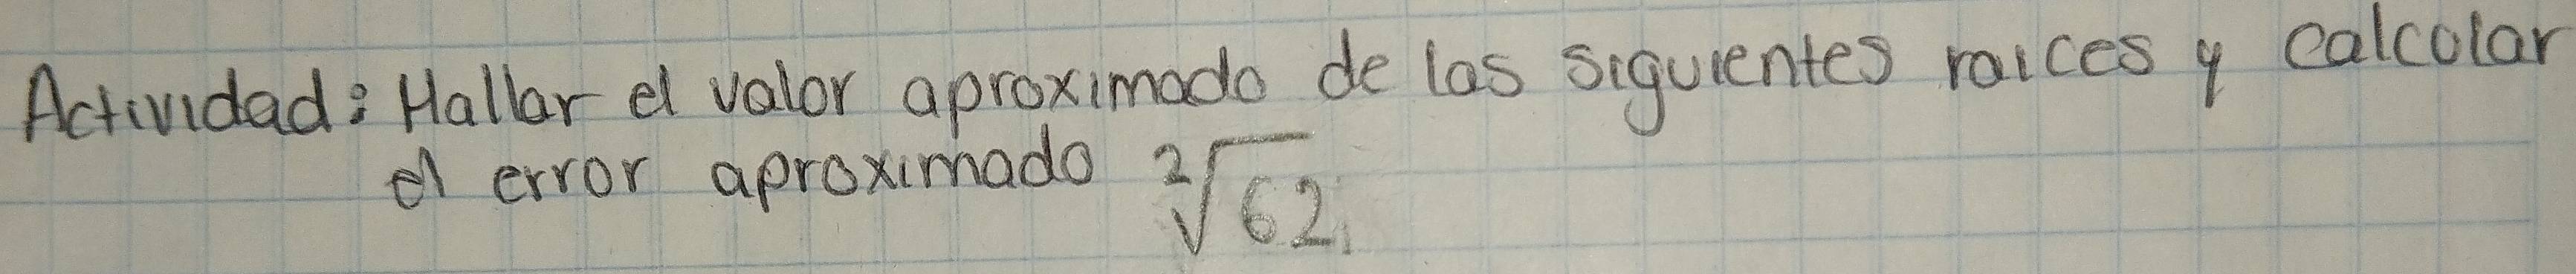 Actividad: Hallar el valor aproximado de las siguientes raices y calcolar
el error aproximado ²√62